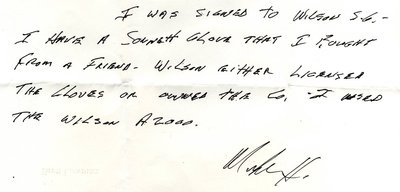 I WAS SIGNED TO WILSON S.G. -
I HAVE A SONNETT GLOVE THAT I BOUGHT
FROM A FRIEND. WILSON EITHER LICENSED
THE GLOVES OR OWNED THE CO. I USED
THE WILSON A2000.